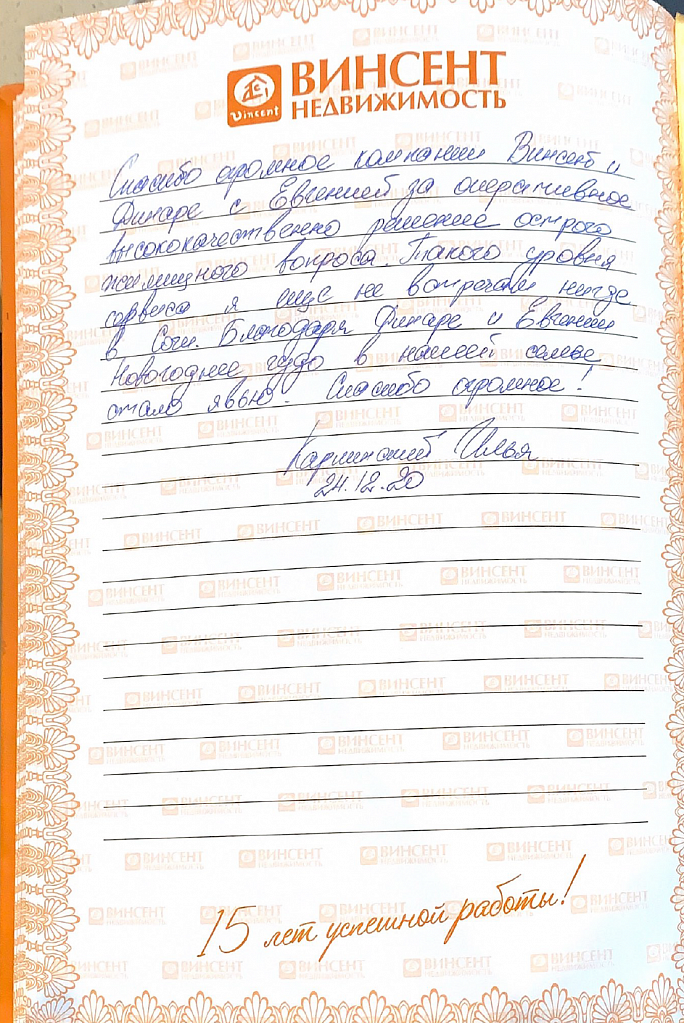 ВИНСЕНТ
НЕДВИЖИМОСТЬ
Vincent
Спасибо огромное компании Винсент и
Динаре с Евгенией за оперативное
высококачественно решение острого
жилищного вопроса. Такого уровня
сервиса я еще не встречал нигде
в Сочи. Благодаря Динаре и Евгении
Новогоднее чудо в нашей семье
стало явью. Спасибо огромное!
Илья
24.12.20
15 лет успешной работы!